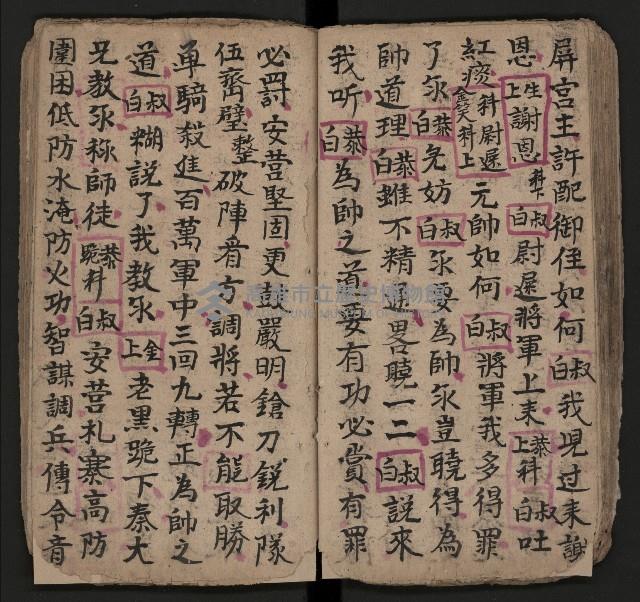 屏宮主許配御侄如何白叔我児过来謝
恩上生謝恩科卜白叔尉遲將軍上来上恭科白叔吐
紅痰科尉遲金笑科上元帥如何白叔將軍我多得罪
了尔白恭免妨白叔尔要為帥尔豈曉得為
帥道理白恭雖不精通畧曉一二白叔說來
我听白恭為帥之道要有功必賞有罪
必罰安营堅固更鼓嚴明鎗刀銳利隊
伍齊璧整破陣看方調將若不能取勝
单騎殺進百萬軍中三回九轉正為帥之
道白叔糊說了我教尔上金老黑跪下秦大
兄教尔称師徒恭跪科白叔安营札寨高防
圍困低防水淹防火功智謀調兵傳令音
高雄市立歷史博物館
KAOHSIUNG MUSEUM OF HISTORY